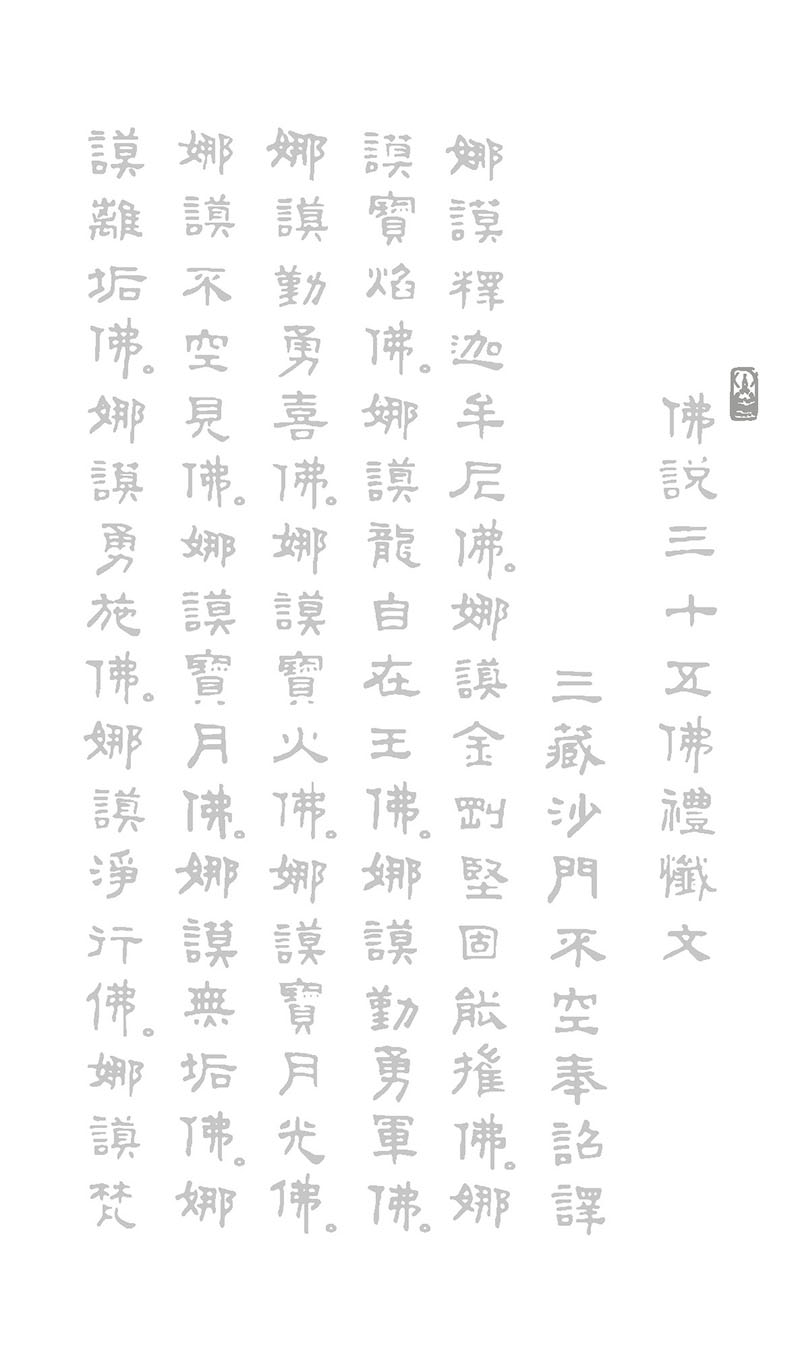 佛説三十五佛禮懺文
三藏沙門不空奉詔譯
娜謨釋迦牟尼佛。娜謨金剛堅固能摧佛。娜
謨寶焰佛。娜謨龍自在王佛。娜謨勤勇軍佛。
娜謨勤勇喜佛。娜謨寶火佛。娜謨寶月光佛。
娜謨不空見佛。娜謨寶月佛。娜謨無垢佛。娜
謨離垢佛。娜謨勇施佛。娜謨淨行佛。娜謨梵